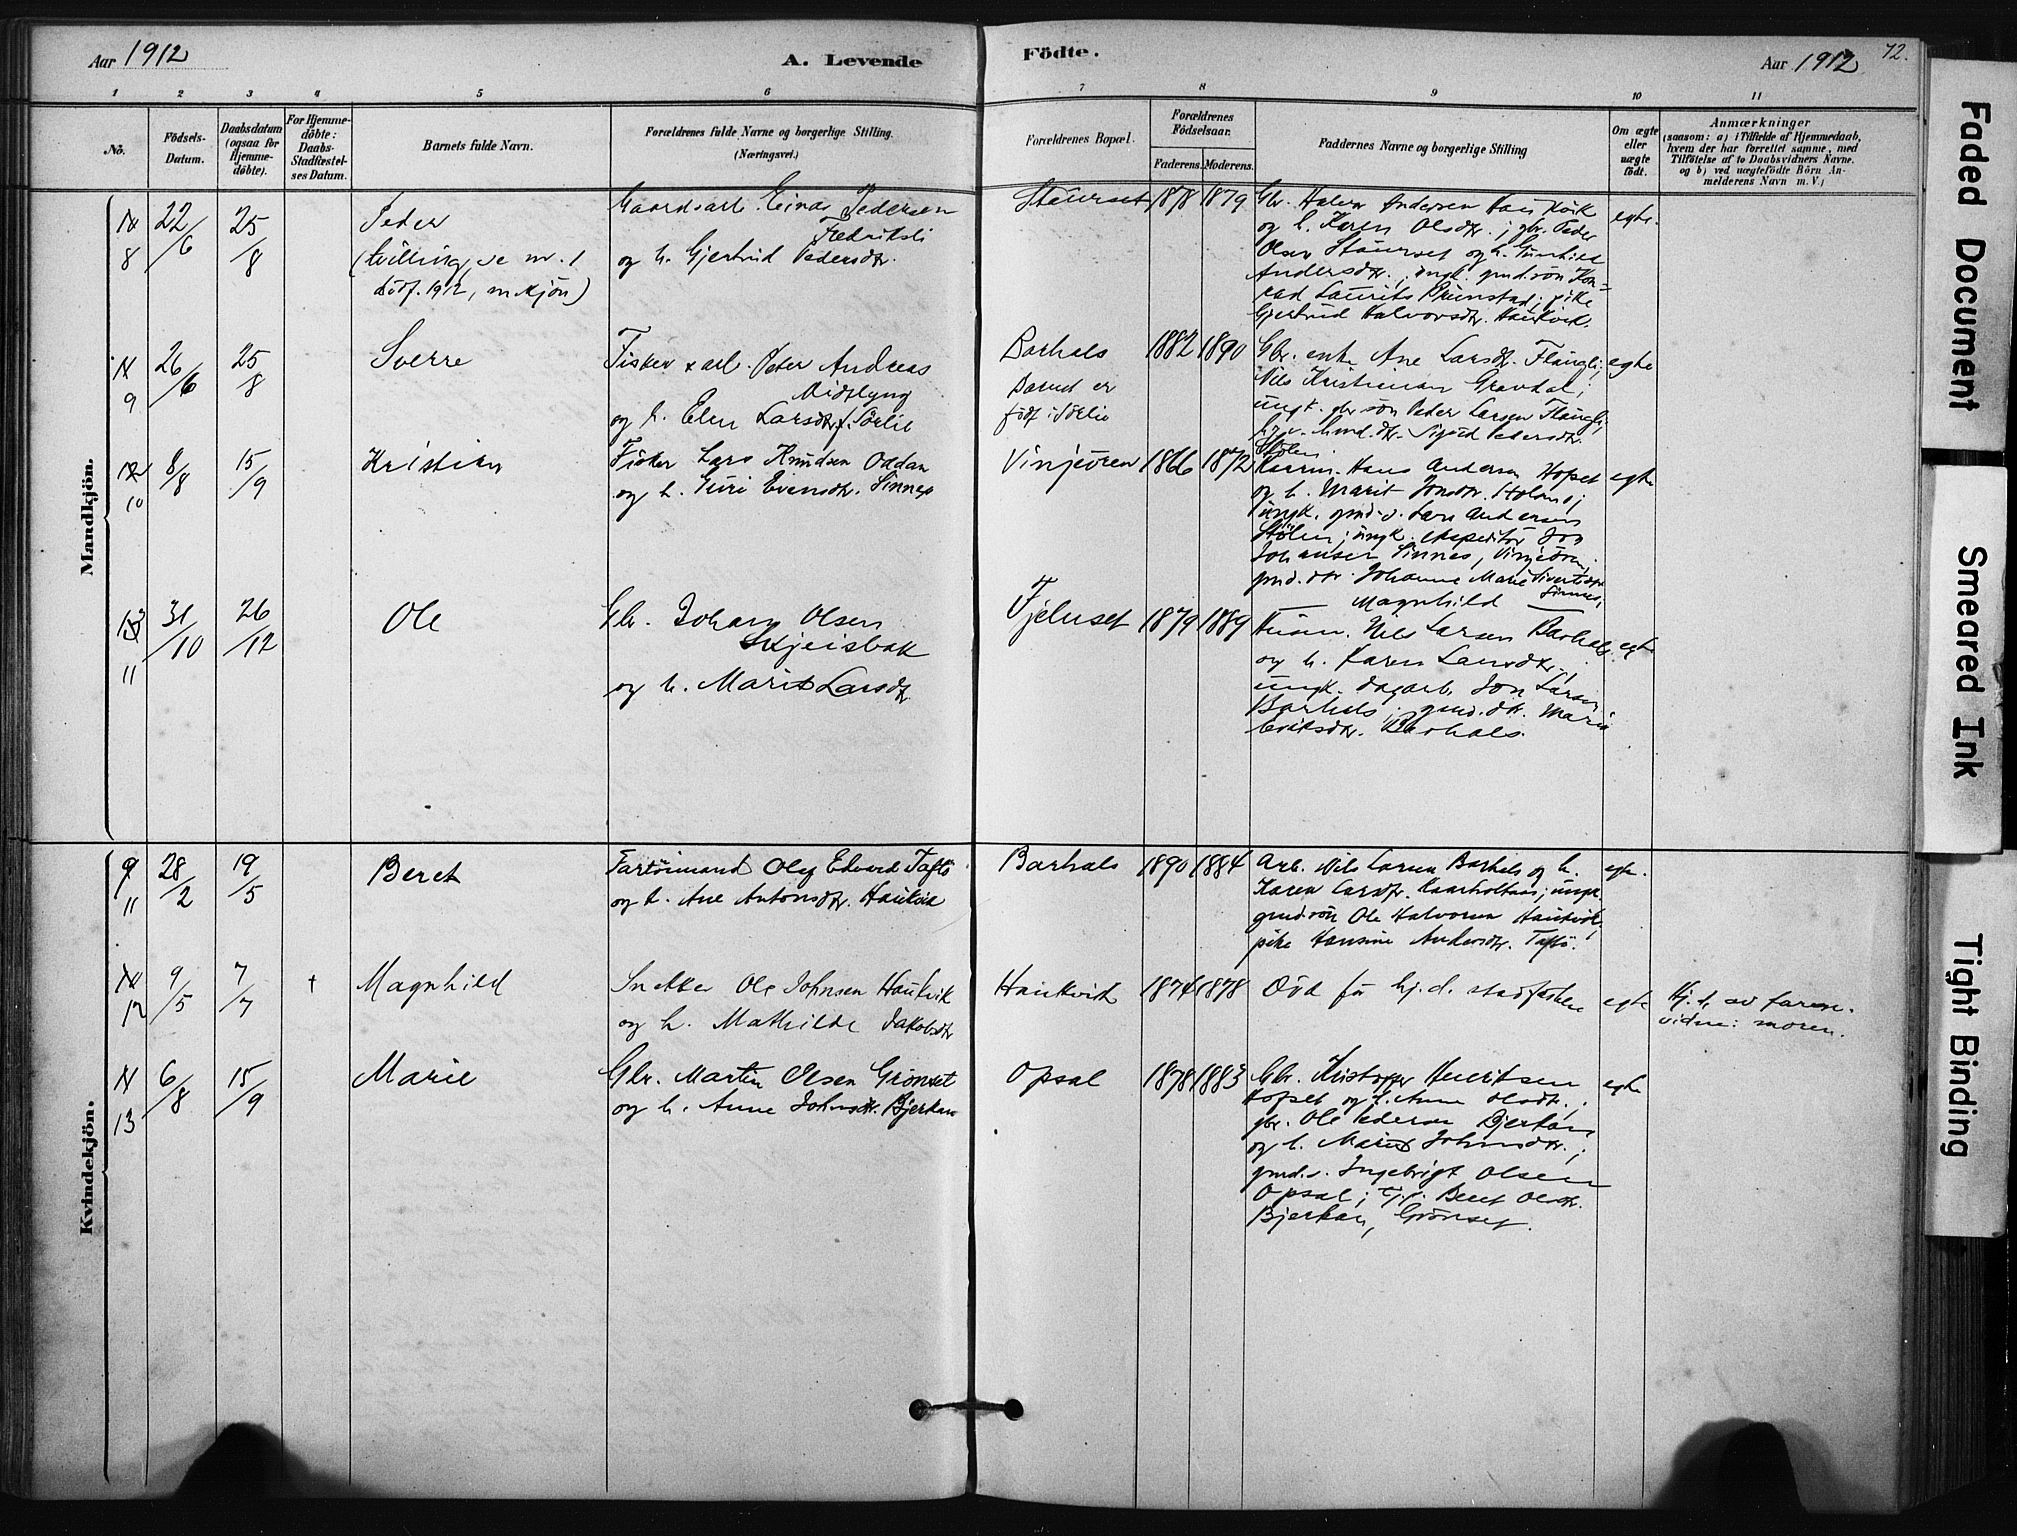 Aar 1912
A. Levende
Födte.
Aar 1912
72.
1 2 3 4 5 6 7 8 9 10 11
No.
Födsels-
Datum.
Daabsdatum
(ogsaa for
Hjemme-
döbte).
For Hjemme-
döbte:
Daabs-
Stadfæstel-
ses Datum.
Barnets fulde Navn.
Forældrenes fulde Navne og borgerlige Stilling.
(Næringsvei.)
Forældrenes Bopæl.
Forældrenes
Födselsaar.
Faderens. Moderens.
Faddernes Navne og borgerlige Stilling
Om ægte
eller
uægte
født.
Anmærkninger
(saasom: a) i Tilfælde af Hjemmedaab,
hvem der har forrettet samme, med
Tilföielse af to Daabsvidners Navne.
og b) ved uægtefödte Börn An-
melderens Navn m. V.)
Mandkjön.
8
22/6
25/8
Peder
(tvilling, se nr. 1
dödf. 1912, m.kjön)
Gaardsarb. Einar Pedersen
Fledriksli
og h. Gjertrud Pedersdtr.
Staurset
1878
1879
Gbr. Halvor Andersen Haukvik
og h. Karen Olsdtr.; gbr. Peder
Olsen Staurset og h. Gunhild
Andersdtr.; ungk. gmd.sön Kon=
rad Laurits Brunstad; pike
Gjertrud Halvorsdtr. Haukvik.
egte.
9
26/6
25/8
Sverre
Fisker & arb. Peter Andreas
Midtlyng
og h. Elen Larsdtr. f. Sörlie
Barhals
Barnet er
födt i Sörlie
1882
1890
Gbr. enke Ane Larsdtr. Flaugli;
Nils Kristiansen Gravdal;
ungk. gbr sön Peder Larsen Flaugli;
Sigrid Pedersdtr.
Stölen.
egte
10
8/8
15/9
Kristian
Fisker Lars Knudsen Oddan
og h. Guri Evensdtr. Sinnes
Vinjeören
1866
1872
Kaarm. Hans Andersen Hopset
og h. Marit Jonsdtr. Holme;
ungk. gmd.s. Lars Andersen
Stölen; ungk. ekspeditör Jon
Johansen Sinnes, Vinjeören;
gmd. dtr. Johanne Marie Sivertsdtr
Sinnes,
— Magnhild —
egte
11
31/10
26/12
Ole
Gbr. Johan Olsen
Skjeisbak
og h. Marit Larsdtr
Fjelnset
1879
1889
Husm. Nils Larsen Barhals
og h. Karen Larsdtr.;
ungk. dagarb. Jon Larsen
Barhals; gmd. dtr. Marie
Eriksdtr. Barhals.
egte
Kvindekjön.
9
11
28/2
19/5
Beret
Fartöimand Oley Edvard Taftö
og h. Ane Antonsdtr. Haukvik
Barhals
1890
1884
Arb. Nils Larsen Barhals og h.
Karen Larsdtr. Kaarholtaas; ungk.
gmd.sön Ole Halvorsen Haukvik;
pike Hansine Andersdtr. Taftö.
egte.
12
9/5
7/7
†
Magnhild
Snekker Ole Johnsen Haukvik
og h. Mathilde Jakobsdtr
Haukvik
1874
1878
Död för hj.d. stadfæsten
egte
Hj.d. av faren.
vidne: moren.
11
13
6/8
15/9
Marie
Gbr. Martin Olsen Grönset
og h. Anne Johnsdtr. Bjerkan
Opsal
1878
1883
Gbr. Kristoffer Henriksen
Hopset og h. Anne Olsdtr.;
gbr. Ole Pedersen Bjerkan
og h. Marit Johnsdtr.;
gmd.s. Ingebrigt Olsen
Opsal; tj.p. Beret Olsdtr.
Bjerkan, Grönset.
egte
Faded Document
Smeared Ink
Tight Binding